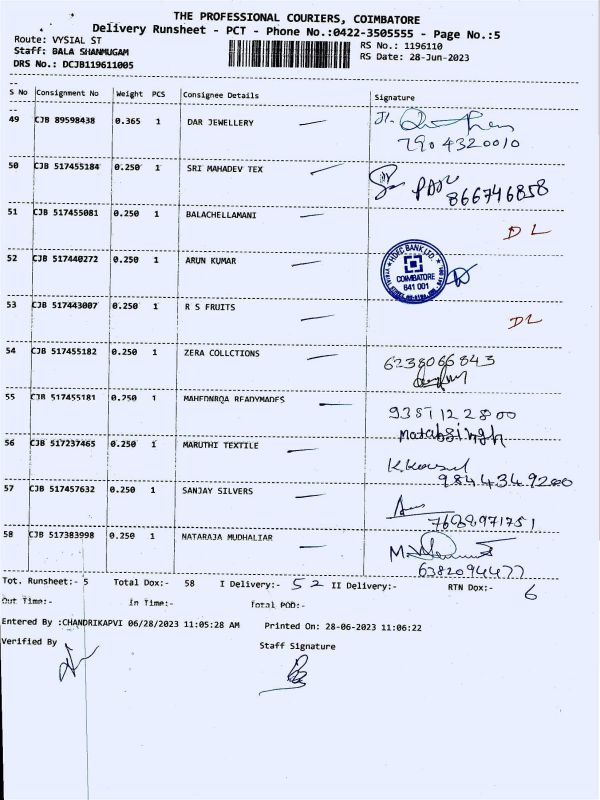 THE PROFESSIONAL COURIERS, COIMBATORE
Delivery Runsheet - PCT - Phone No.:0422-3505555 - Page No.:5
Route: VYSIAL ST RS No.: 1196110
Staff: BALA SHANMUGAM RS Date: 28-Jun-2023
DRS No.: DCJB119611005
S No Consignment No Weight PCS Consignee Details Signature
49 CJB 89598438 0.365 1 DAR JEWELLERY
7904320010
50 CJB 517455184 0.250 1 SRI MAHADEV TEX
866746858
51 CJB 517455081 0.250 1 BALACHELLAMANI
DL
52 CJB 517440272 0.250 1 ARUN KUMAR
HDFC BANK LTD.
COIMBATORE
641 001
53 CJB 517443007 0.250 1 R S FRUITS
DL
54 CJB 517455182 0.250 1 ZERA COLLCTIONS
6238066843
55 CJB 517455181 0.250 1 MAHEDNRQA READYMADES
9381122800
Motabsingh
56 CJB 517237465 0.250 1 MARUTHI TEXTILE
9844349200
57 CJB 517457632 0.250 1 SANJAY SILVERS
7698971751
58 CJB 517383998 0.250 1 NATARAJA MUDHALIAR
6382094477
Tot. Runsheet:- 5 Total Dox:- 58 I Delivery:- 52 II Delivery:- RTN Dox:- 6
Out Time:- in Time:- Total POD:-
Entered By :CHANDRIKAPVI 06/28/2023 11:05:28 AM Printed On: 28-06-2023 11:06:22
Verified By Staff Signature